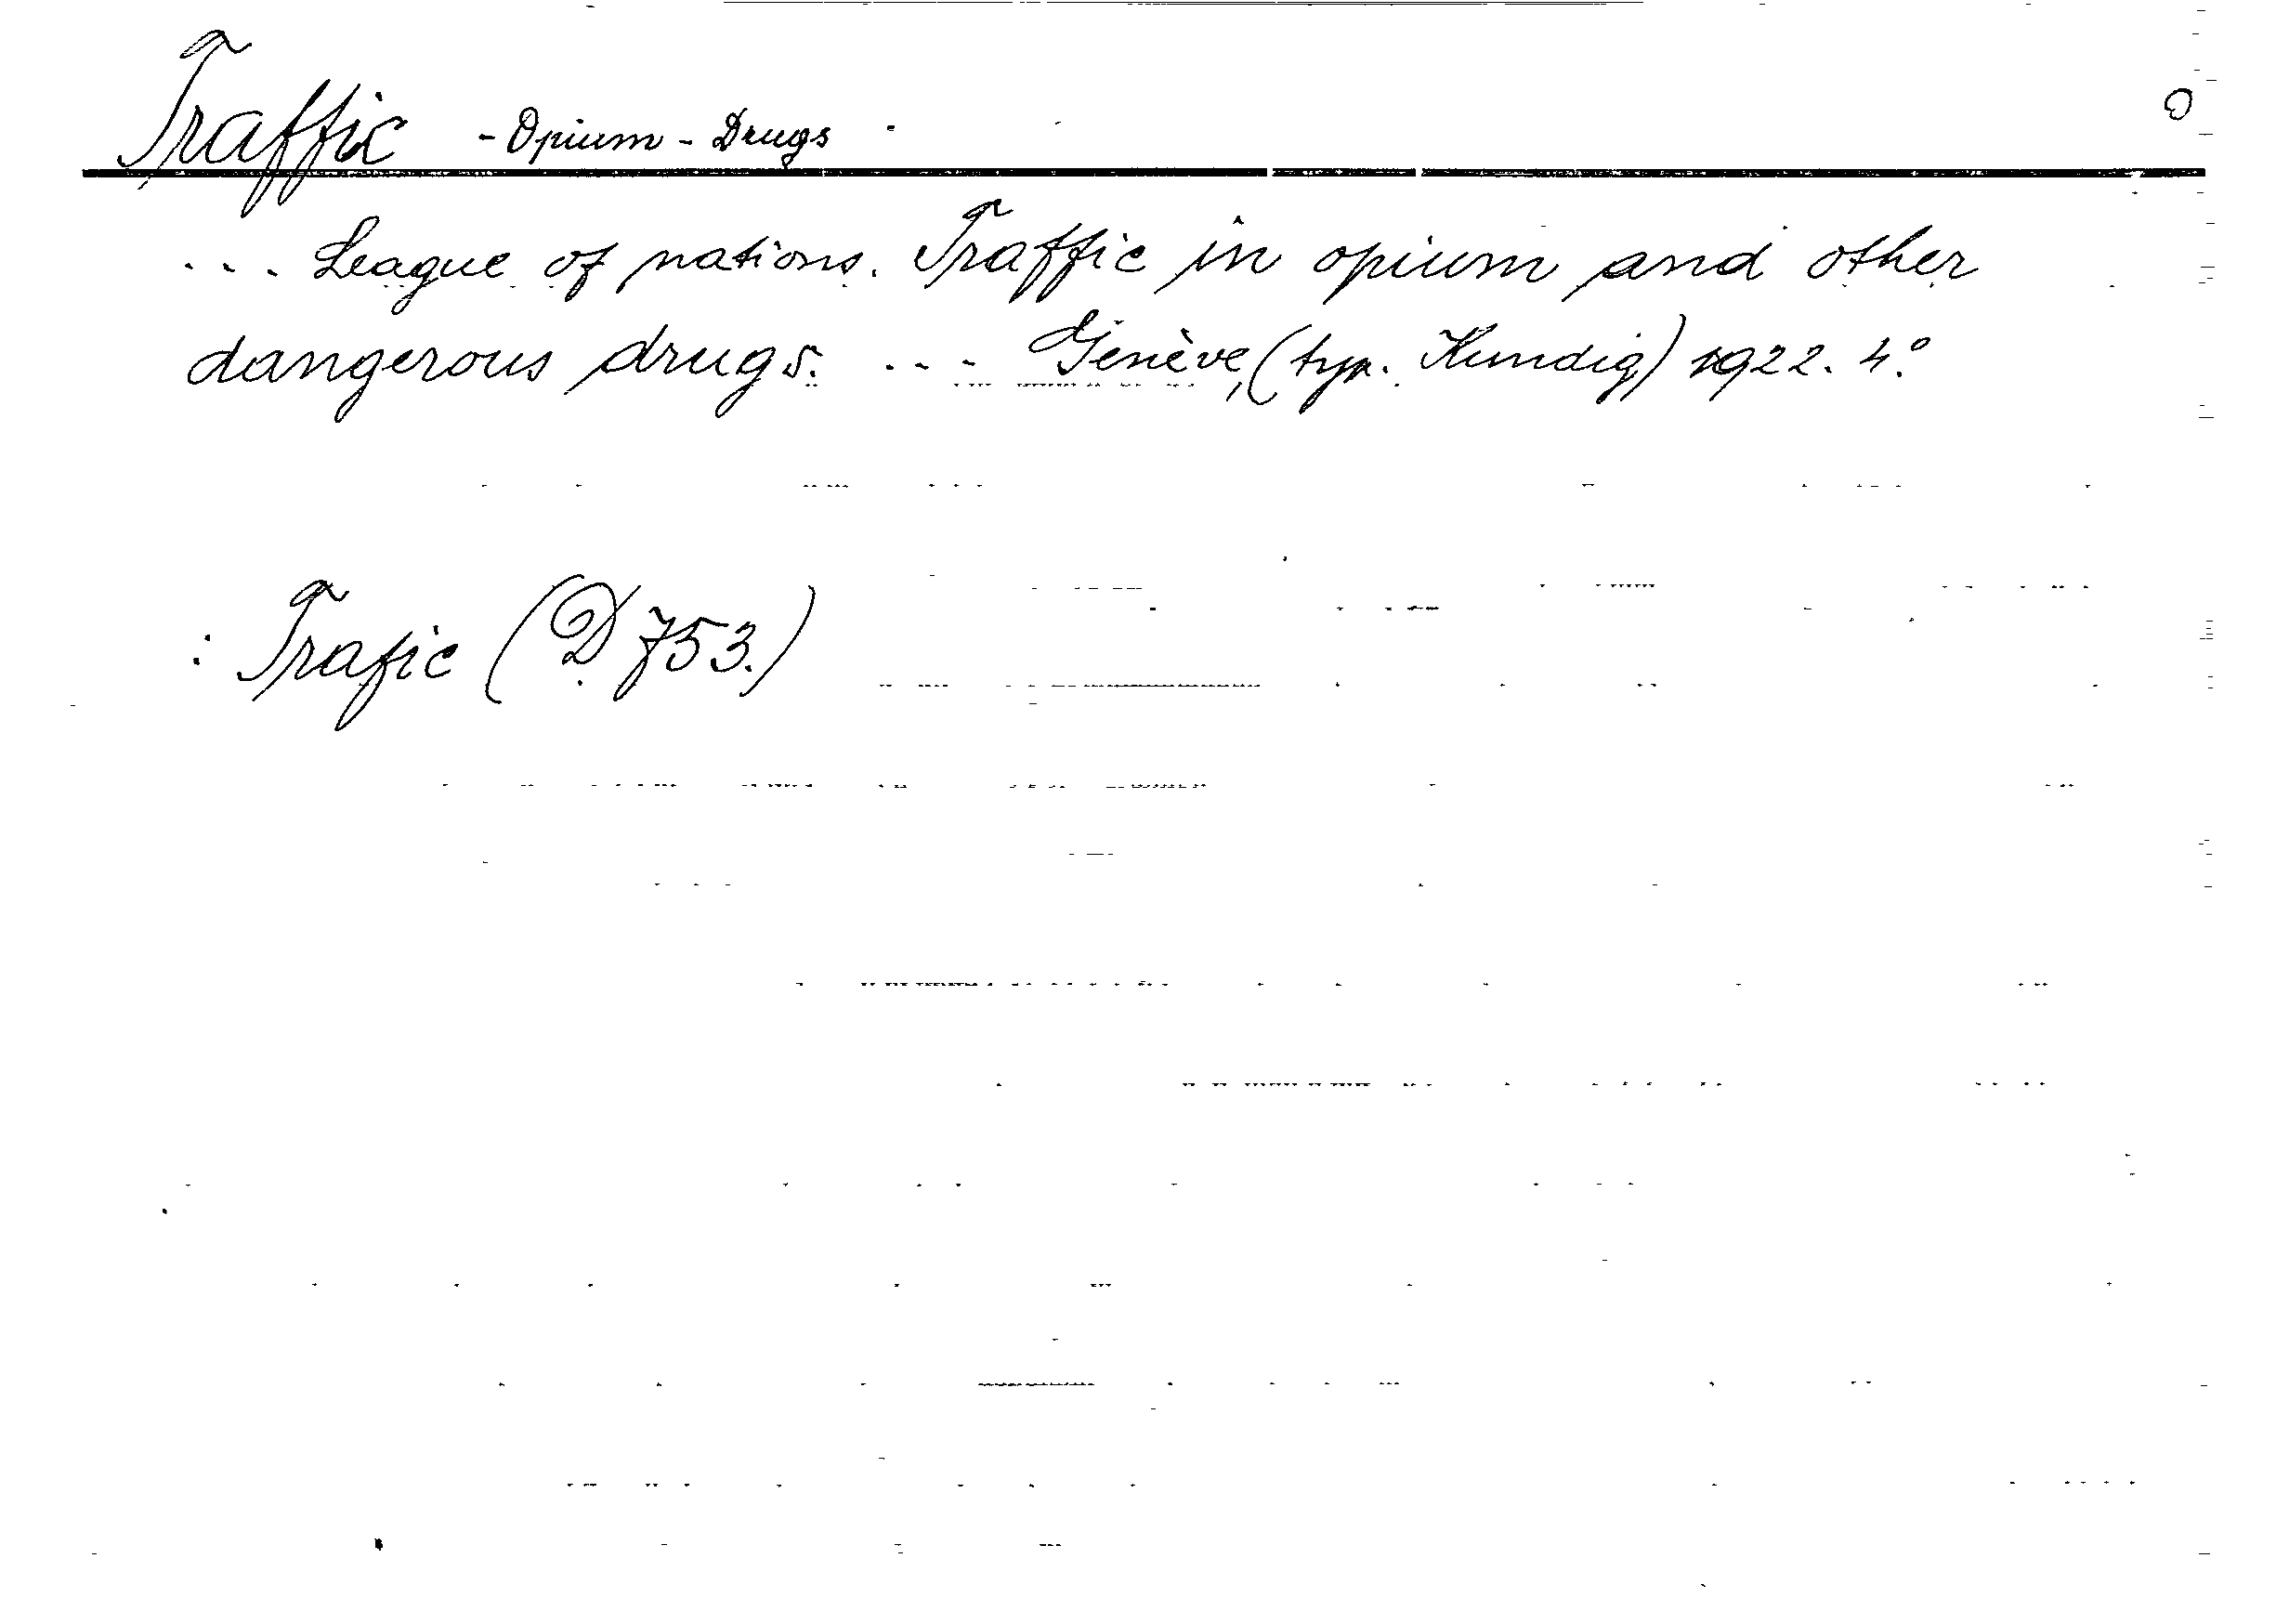 Traffic - Opium - Drugs
... League of nations. Traffic in opium and other
dangerous drugs. ... Genève, (typ. Kundig) 1922. 4.º
: Trafic (D 753.)